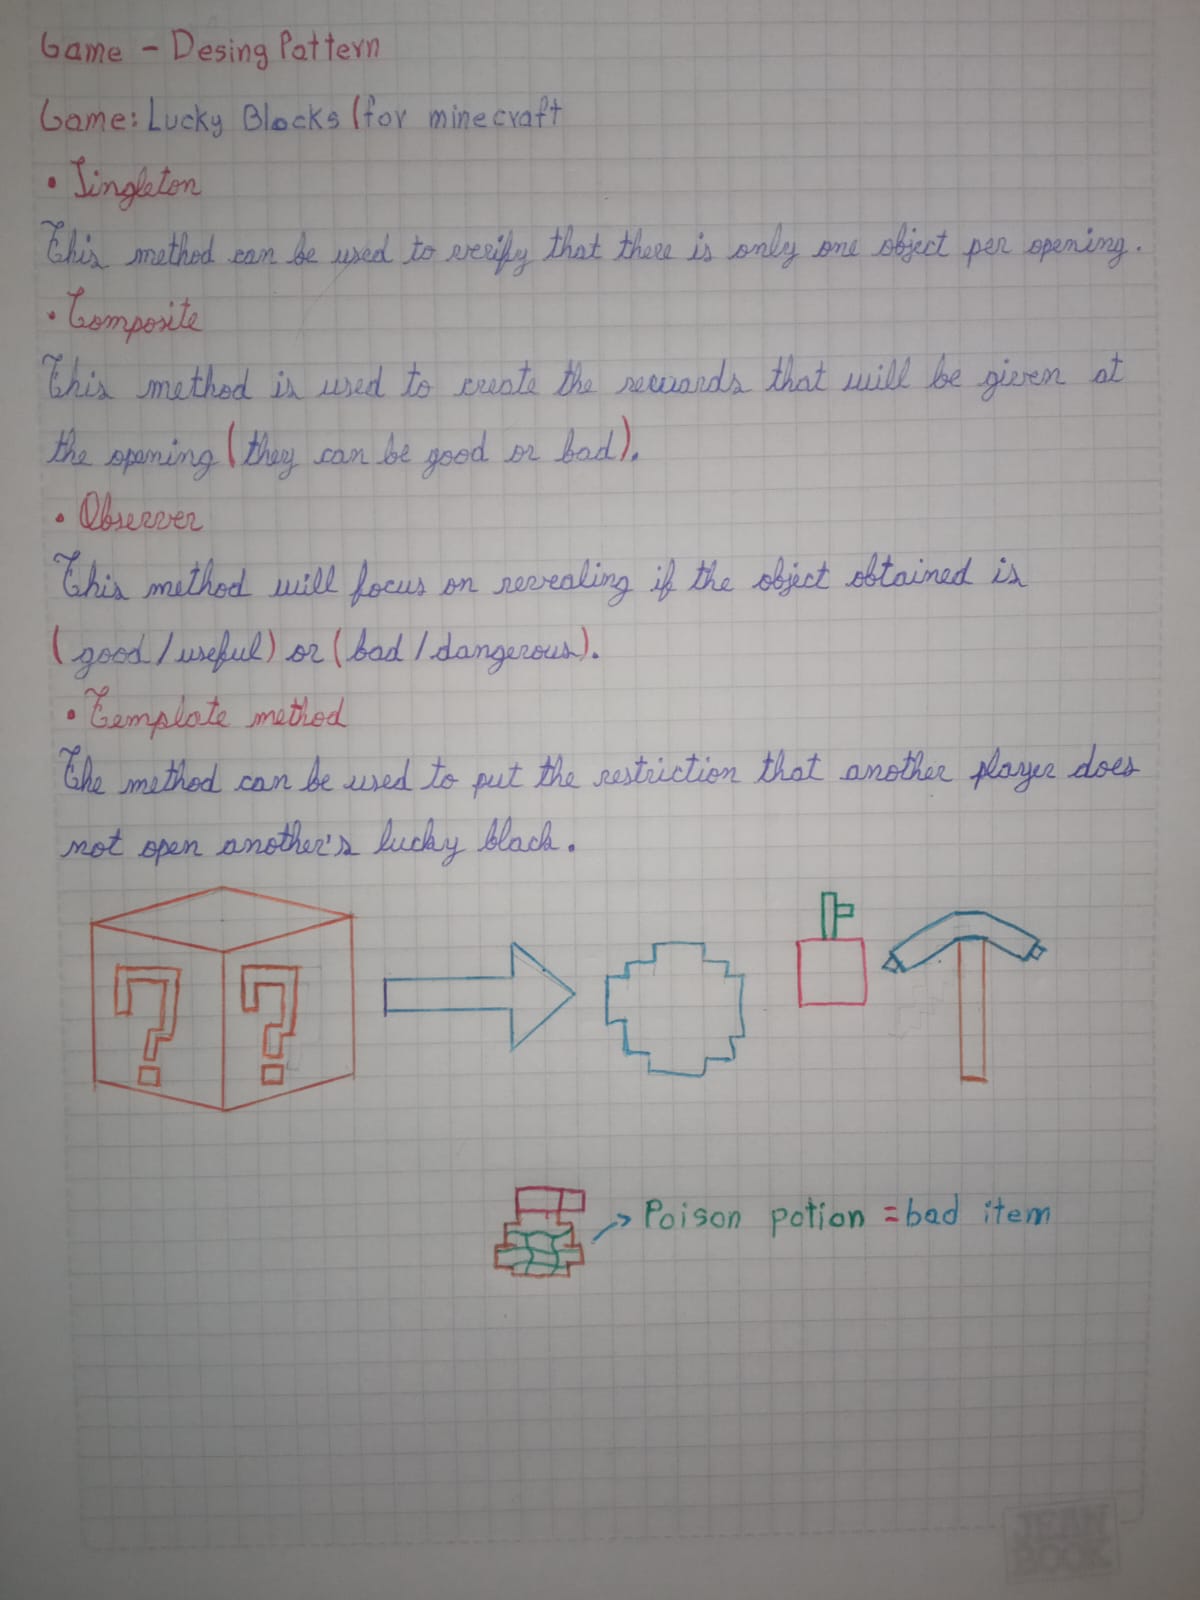 Game - Desing Pattern
Game: Lucky Blocks (for minecraft
• Singleton
This method can be used to verify that there is only one object per opening.
• Composite
This method is used to create the rewards that will be given at
the opening (they can be good or bad).
• Observer
This method will focus on revealing if the object obtained is
(good / useful) or (bad / dangerous).
• Template method
The method can be used to put the restriction that another player does
not open another's lucky block.
? ?
Poison potion = bad item
JEAN
BOOK